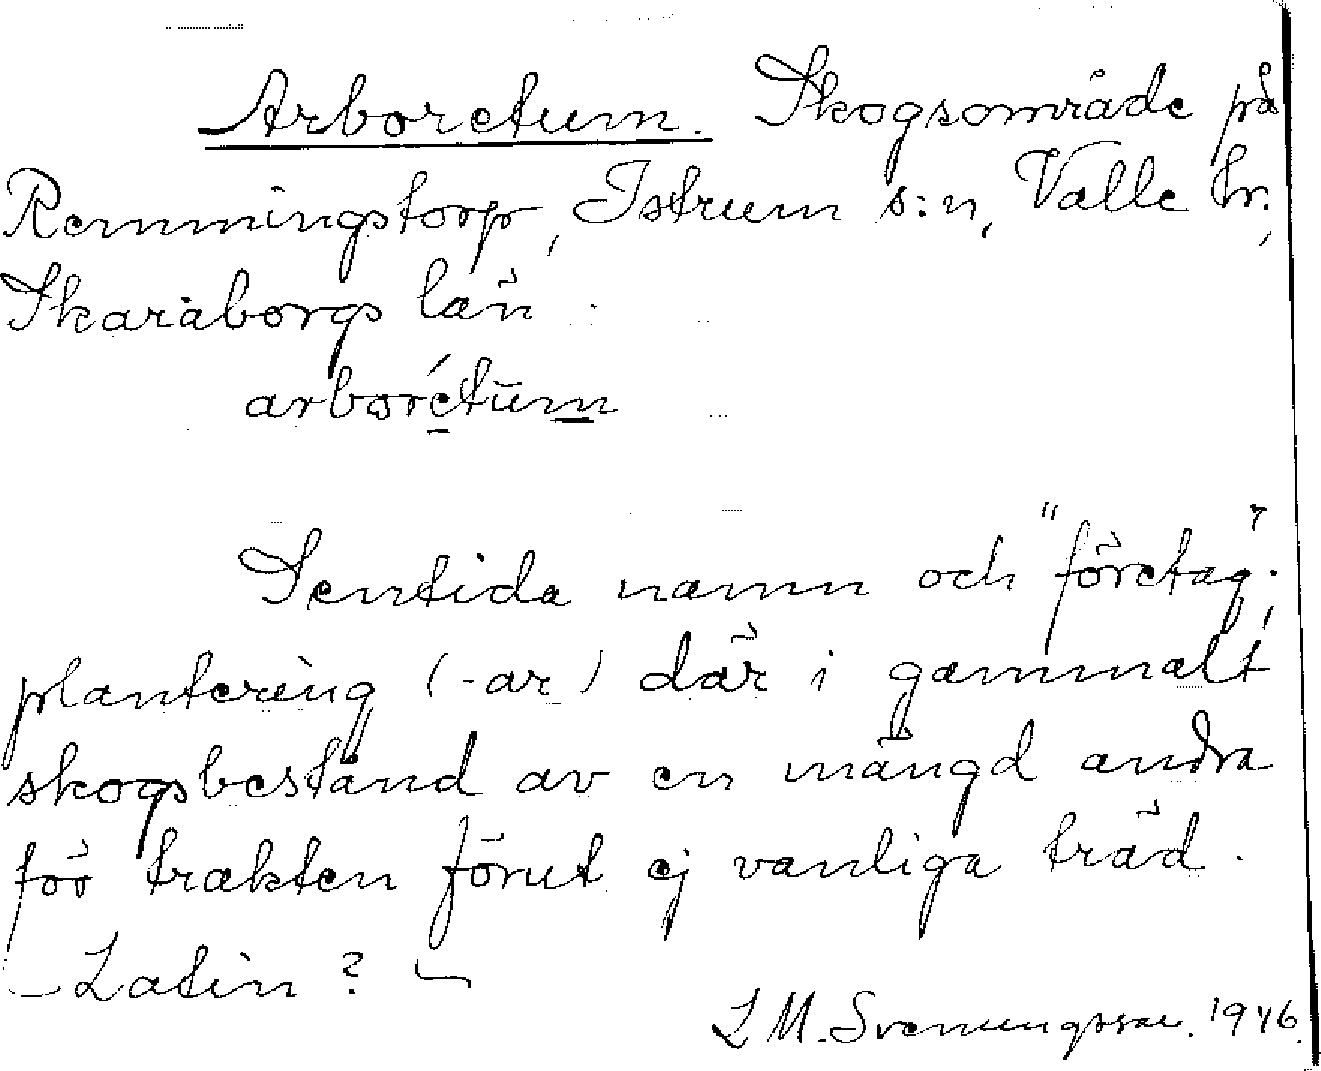 Arboretum. Skogsområde på
Remmingstorp, Istrum s:n, Valle hr.,
Skaraborgs län.
arborétum
Sentida namn och "företag",
plantering (-ar) där i gammalt
skogsbestånd av en mängd andra
för trakten förut ej vanliga träd.
Latin?
L M. Svenungsson. 1946.